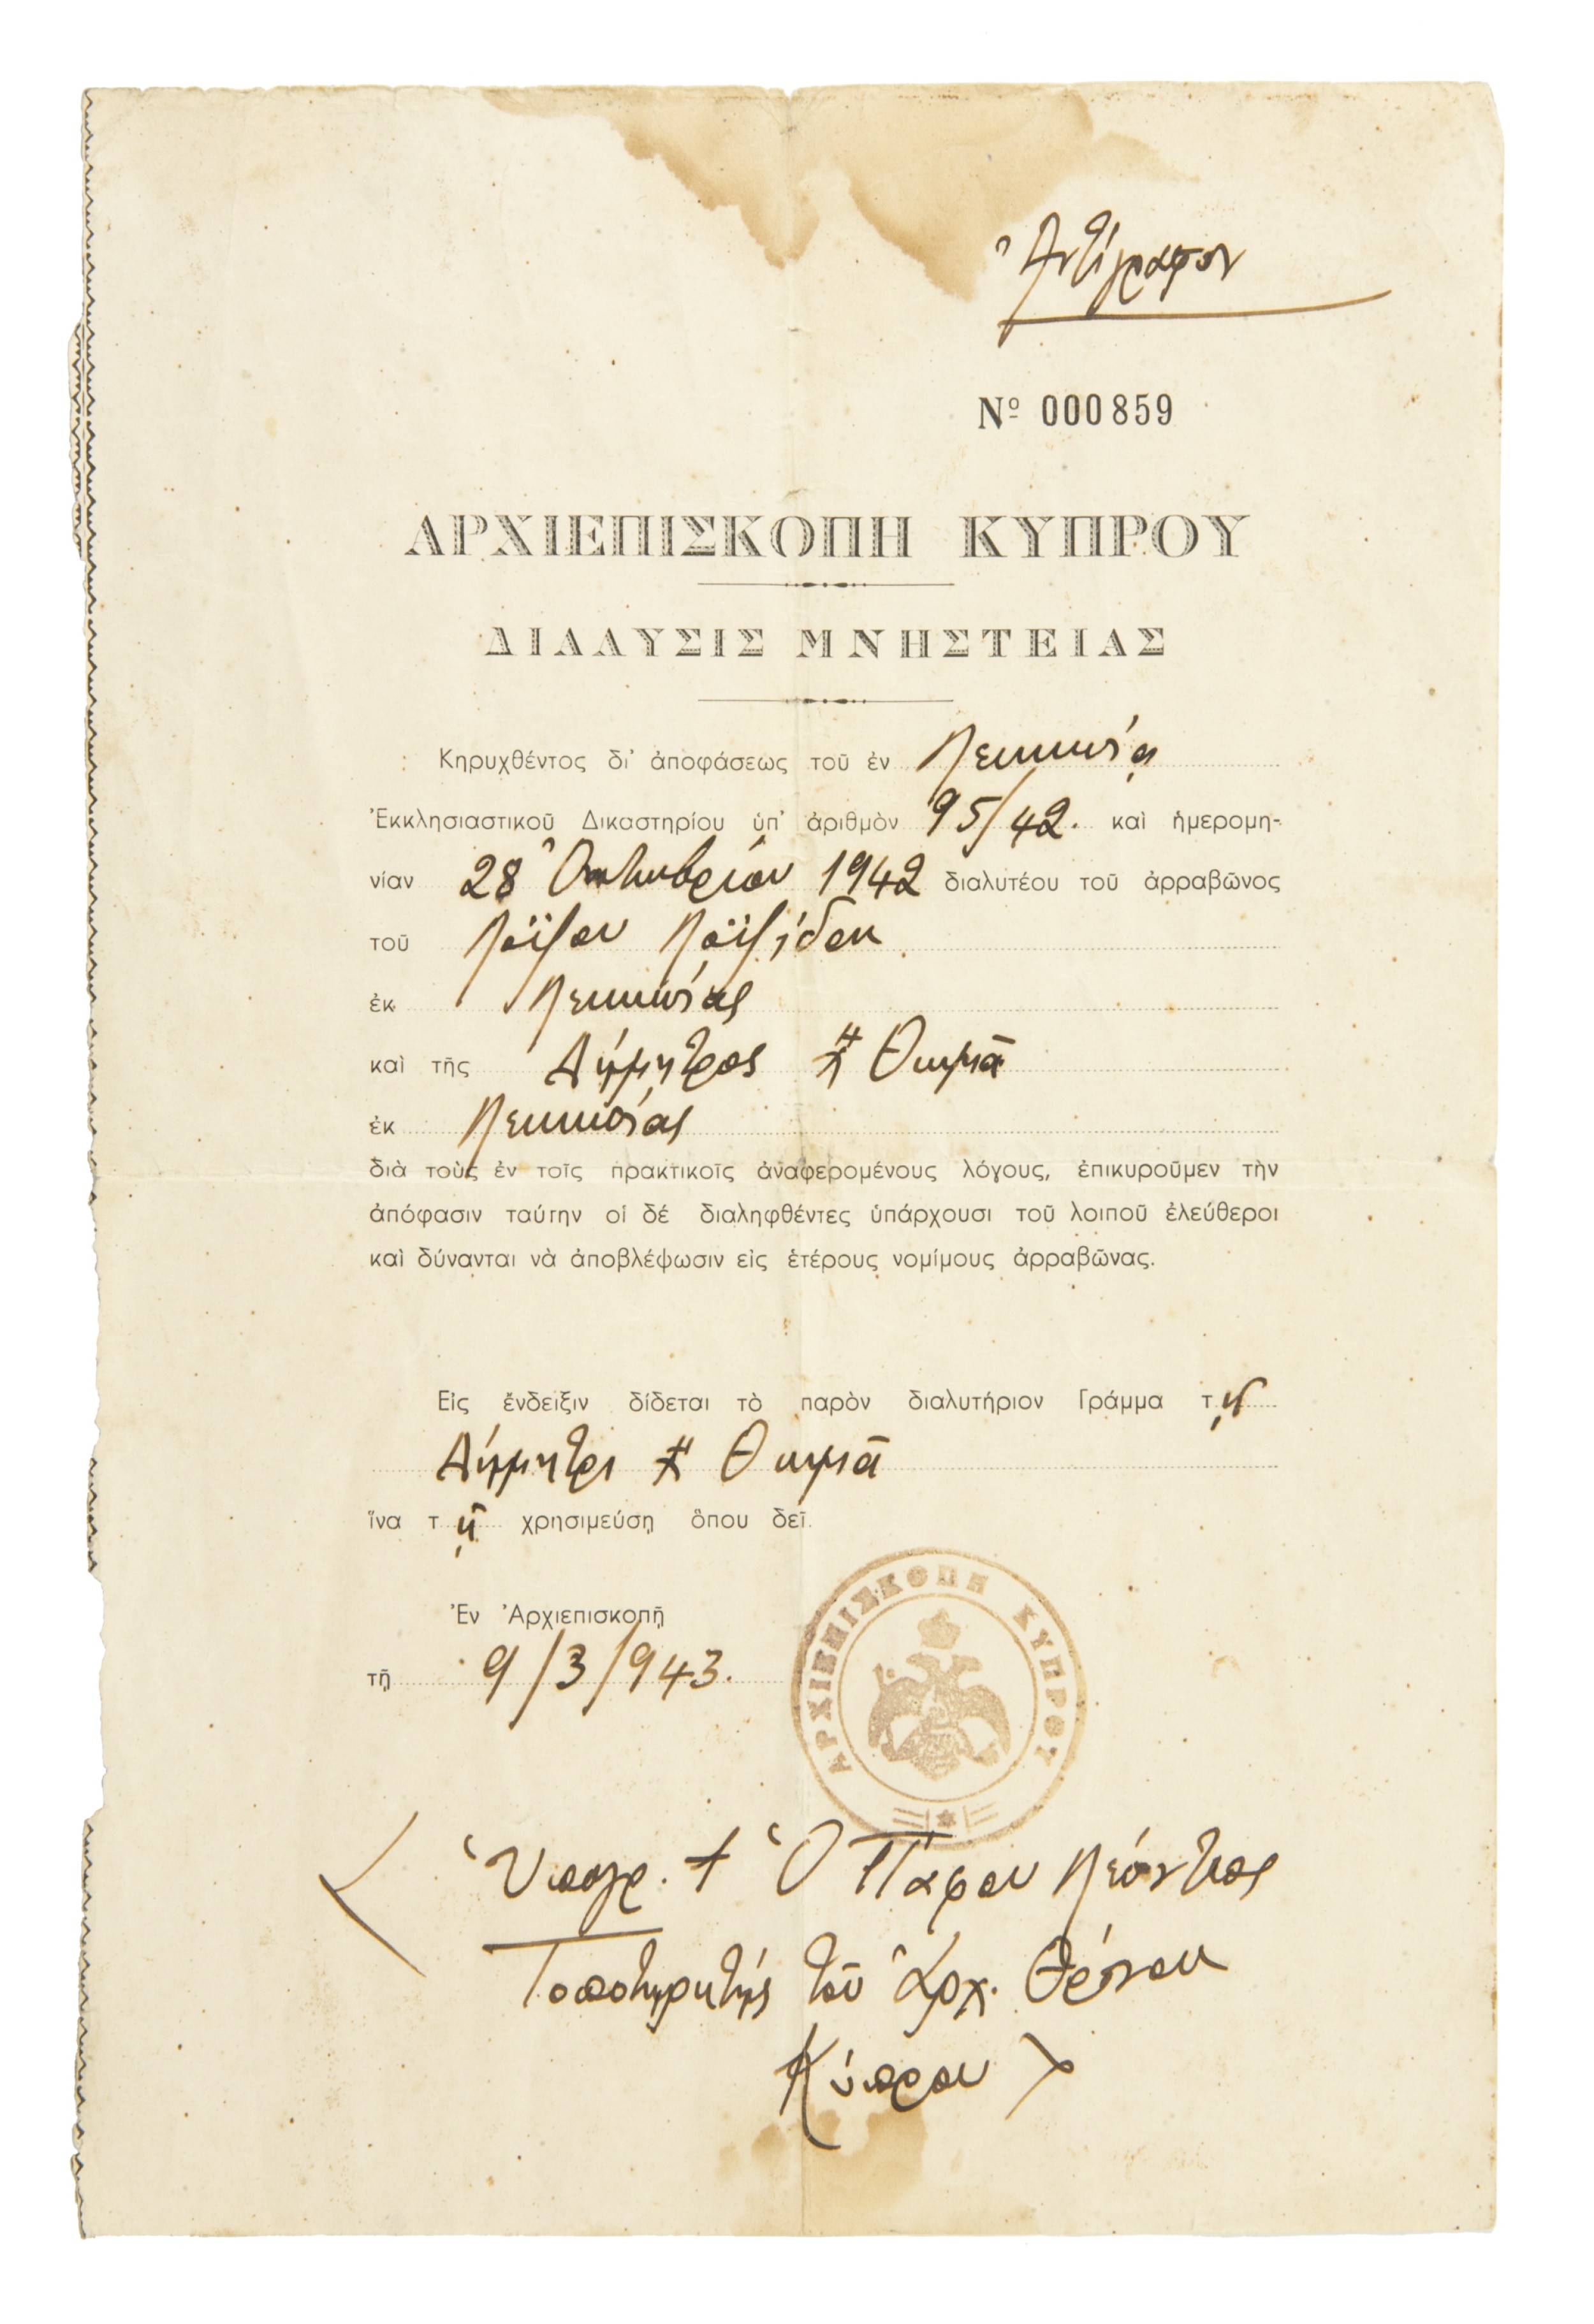 Ἀντίγραφον
Nº 000859
ΑΡΧΙΕΠΙΣΚΟΠΗ ΚΥΠΡΟΥ
ΔΙΑΛΥΣΙΣ ΜΝΗΣΤΕΙΑΣ
Κηρυχθέντος δι' ἀποφάσεως τοῦ ἐν Λευκωσίᾳ
Ἐκκλησιαστικοῦ Δικαστηρίου ὑπ' ἀριθμὸν 95/42. καὶ ἡμερομη-
νίαν 28 Ὀκτωβρίου 1942 διαλυτέου τοῦ ἀρραβῶνος
τοῦ Λοΐζου Λοϊζίδου
ἐκ Λευκωσίας
καὶ τῆς Δήμητρος Χ" Θωμᾶ
ἐκ Λευκωσίας
διὰ τοὺς ἐν τοῖς πρακτικοῖς ἀναφερομένους λόγους, ἐπικυροῦμεν τὴν
ἀπόφασιν ταύτην οἱ δέ διαληφθέντες ὑπάρχουσι τοῦ λοιποῦ ἐλεύθεροι
καὶ δύνανται νὰ ἀποβλέψωσιν εἰς ἑτέρους νομίμους ἀρραβῶνας.
Εἰς ἔνδειξιν δίδεται τὸ παρὸν διαλυτήριον Γράμμα τῇ
Δήμητρι Χ" Θωμᾶ
ἵνα τῇ χρησιμεύσῃ ὅπου δεῖ.
Ἐν Ἀρχιεπισκοπῇ
τῇ 9/3/943.
ΑΡΧΙΕΠΙΣΚΟΠΗ ΚΥΠΡΟΥ
Ὑπογρ. † Ὁ Πάφου Λεόντιος
Τοποτηρητὴς τοῦ Ἀρχ. Θρόνου
Κύπρου